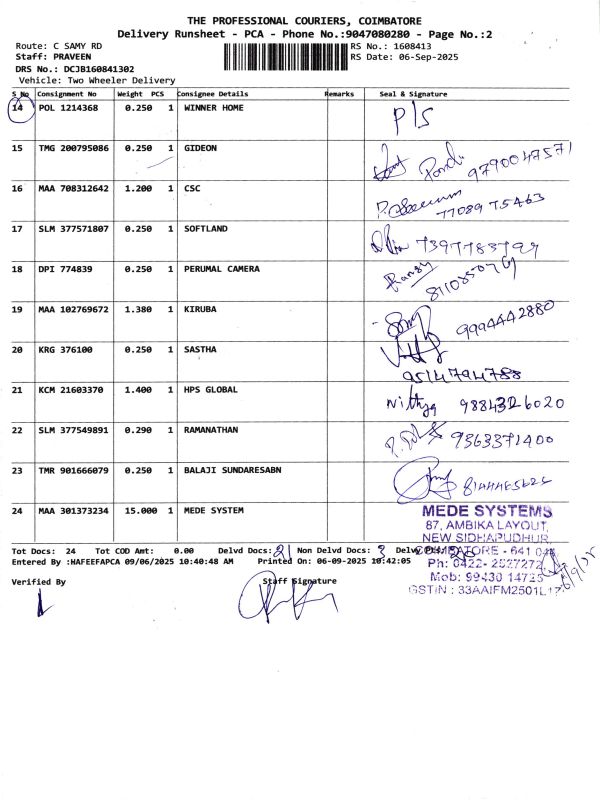 THE PROFESSIONAL COURIERS, COIMBATORE
Delivery Runsheet - PCA - Phone No.:9047080280 - Page No.:2
Route: C SAMY RD RS No.: 1608413
Staff: PRAVEEN RS Date: 06-Sep-2025
DRS No.: DCJB160841302
Vehicle: Two Wheeler Delivery
S_No Consignment No Weight PCS Consignee Details Remarks Seal & Signature
14 POL 1214368 0.250 1 WINNER HOME P/S
15 TMG 200795086 0.250 1 GIDEON 9790047571
16 MAA 708312642 1.200 1 CSC 7708975463
17 SLM 377571807 0.250 1 SOFTLAND 7397783799
18 DPI 774839 0.250 1 PERUMAL CAMERA
19 MAA 102769672 1.380 1 KIRUBA 9994442880
20 KRG 376100 0.250 1 SASTHA 9514794788
21 KCM 21603370 1.400 1 HPS GLOBAL Nithya 9884326020
22 SLM 377549891 0.290 1 RAMANATHAN 9363371400
23 TMR 901666079 0.250 1 BALAJI SUNDARESABN
24 MAA 301373234 15.000 1 MEDE SYSTEM
MEDE SYSTEMS
87, AMBIKA LAYOUT,
NEW SIDHAPUDHUR,
COIMBATORE - 641 044
Ph: 0422- 2527272
Mob: 99430 14725
GSTIN : 33AAIFM2501L1Z
Tot Docs: 24 Tot COD Amt: 0.00 Delvd Docs: 21 Non Delvd Docs: 3
Entered By :HAFEEFAPCA 09/06/2025 10:40:48 AM Printed On: 06-09-2025 10:42:05
6/9/25
Verified By Staff Signature